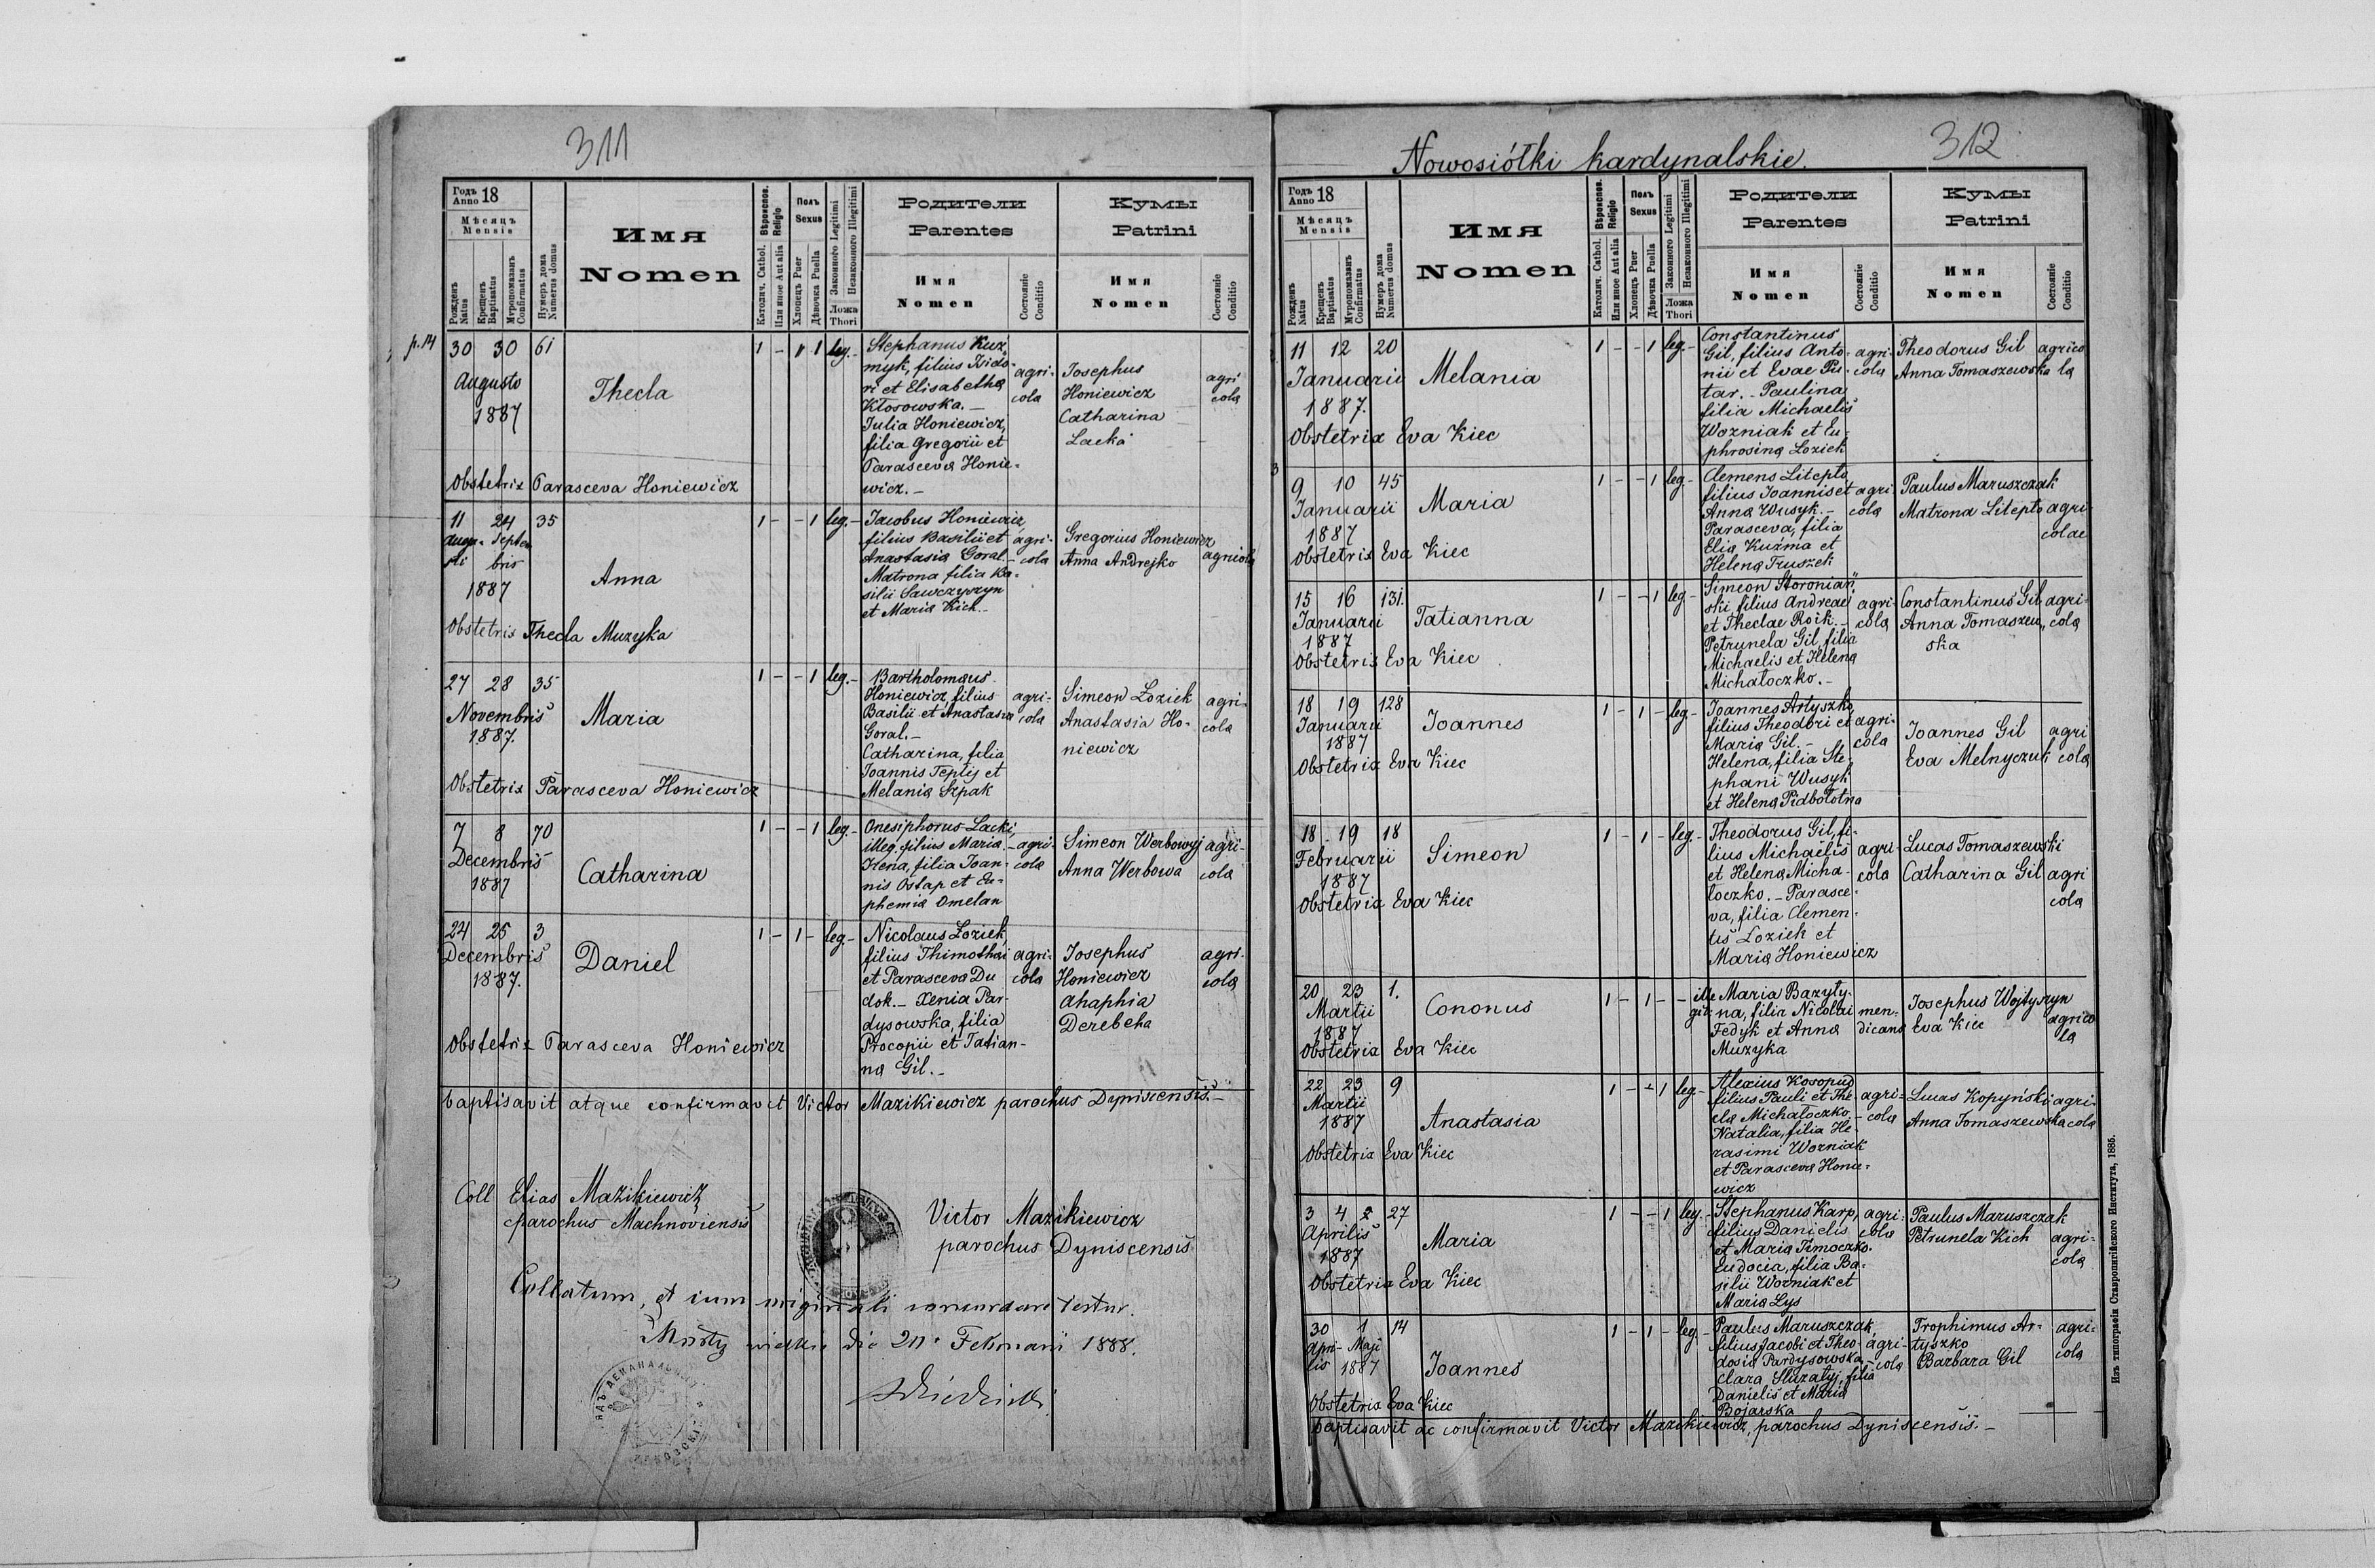 311
Годъ Anno 18
Мѣсяцъ
Mensis
Рожденъ Natus
Крещенъ Baptisatus
Муропомазанъ Confirmatus
Нумеръ дома Numerus domus
Имя
Nomen
Вѣроиспов. Religio
Католич. Cathol.
Или иное Aut alia
Полъ
Sexus
Хлопецъ Puer
Дѣвочка Puella
Законного Legitimi
Незаконного Illegitimi
Ложа
Thori
Родители
Parentes
Имя
Nomen
Состояніе
Conditio
Кумы
Patrini
Имя
Nomen
Состояніе
Conditio
p.14
30 30 61
Augusto
1887
Thecla
1 - 1 1 leg. -
Stephanus Kuź
myk, filius Isido-
ri et Elisabetha
Kłosowska. -
Julia Honiewicz,
filia Gregorii et
Parasceva Honie-
wicz. -
agri-
cola
Josephus
Honiewicz
Catharina
Lacka
agri
cola
Obstetrix Parasceva Honiewicz
11 24 35
Augu- Septem
sti bris
1887
Anna
1 - - 1 leg. -
Jacobus Honiewicz,
filius Basilii et
Anastasia Goral. -
Matrona filia Ba-
silii Sawczyszyn
et Maria Kich. -
agri-
cola
Gregorius Honiewicz
Anna Andrejko
agricola
Obstetrix Thecla Muzyka
27 28 35
Novembris
1887.
Maria
1 - - 1 leg. -
Bartholomaus
Honiewicz, filius
Basilii et Anastasia
Goral. -
Catharina, filia
Joannis Teptij et
Melania Szpak
agri-
cola
Simeon Łoziek
Anastasia Ho-
niewicz
agri-
cola
Obstetrix Parasceva Honiewicz
7 8 70
Decembris
1887
Catharina
1 - - 1 leg. -
Onesiphorus Lacki,
illeg. filius Maria. -
Irena, filia Joan-
nis Ostap et Eu-
phemia Omelan
agri-
cola
Simeon Werbowyj
Anna Werbowa
agri-
cola
24 25 3
Decembris
1887.
Daniel
1 - 1 - leg. -
Nicolaus Łoziek,
filius Thimothai
et Parasceva Du
dok. - Xenia Par-
dysowska, filia
Procopii et Tatian-
na Gil. -
agri-
cola
Josephus
Honiewicz
Ahaphia
Derebeha
agri-
cola
Obstetrix Parasceva Honiewicz
baptisavit atque confirmavit Victor Mazikiewicz parochus Dyniscensis. -
Coll Elias Mazikiewicz
parochus Machnoviensis
Victor Mazikiewicz
parochus Dyniscensis
Collatum, et cum originali concordare testur.
die 20 Februarii 1888.
Nowosiółki kardynalskie.
312
Годъ Anno 18
Мѣсяцъ
Mensis
Рожденъ Natus
Крещенъ Baptisatus
Муропомазанъ Confirmatus
Нумеръ дома Numerus domus
Имя
Nomen
Вѣроиспов. Religio
Католич. Cathol.
Или иное Aut alia
Полъ
Sexus
Хлопецъ Puer
Дѣвочка Puella
Законного Legitimi
Незаконного Illegitimi
Ложа
Thori
Родители
Parentes
Имя
Nomen
Состояніе
Conditio
Кумы
Patrini
Имя
Nomen
Состояніе
Conditio
11 12 20
Januarii
1887.
Melania
1 - - 1 leg. -
Constantinus
Gil, filius Anto-
nii et Evae Pu-
tar. - Paulina
filia Michaelis
Wozniak et Eu-
phrosina Łoziek
agri-
cola
Theodorus Gil
Anna Tomaszewska
agrico
la
Obstetrix Eva Kiec
9 10 45
Januarii
1887
Maria
1 - - 1 leg. -
Clemens Litepto
filius Joannis et
Anna Wusyk. -
Parasceva, filia
Elia Kuźma et
Helena Truszek
agri
cola
Paulus Maruszczak
Matrona Litepto
agri-
colae
Obstetrix Eva Kiec
15 16 131.
Januarii
1887
Tatianna
1 - - 1 leg. -
Simeon Storonian"
ski, filius Andreae
et Theclae Roik. -
Petrunela Gil, filia
Michaelis et Helena
Michałoczko. -
agri-
cola
Constantinus Gil
Anna Tomaszew"
ska
agri-
cola
Obstetrix Eva Kiec
18 19 128
Januarii
1887
Joannes
1 - 1 - leg. -
Joannes Artyszko,
filius Theodori et
Maria Gil. -
Helena, filia Ste-
phani Wusyk
et Helena Pidbołotna
agri-
cola
Joannes Gil
Eva Melnyczuk
agri
cola
Obstetrix Eva Kiec
18 19 18
Februarii
1887
Simeon
1 - 1 - leg. -
Theodorus Gil, fi-
lius Michaelis
et Helena Micha-
łoczko. - Parasce-
va, filia Clemen-
tis Łoziek et
Maria Honiewicz
agri-
cola
Lucas Tomaszewski
Catharina Gil
agri
cola
Obstetrix Eva Kiec
20 23 1.
Martii
1887
Cononus
1 - 1 - - ille
git-
Maria Bazyty-
na, filia Nicolai
Fedyk et Anna
Muzyka
men-
dicans
Josephus Wojtyszyn
Eva Kiec
agrico
la
Obstetrix Eva Kiec
22 23 9
Martii
1887
Anastasia
1 - - 1 leg. -
Alexius Kosopud
filius Pauli et The-
cla Michałoczko. -
Natalia, filia He-
rasimi Wozniak
et Parasceva Honie-
wicz
agri-
cola
Lucas Kopyński
Anna Tomaszewska
agri-
cola
Obstetrix Eva Kiec
3 4 27
Aprilis
1887
Maria
1 - - 1 leg. -
Stephanus Karp,
filius Danielis
et Maria Timoczko.
Eudocia, filia Ba-
silii Wozniak et
Maria Lys
agri-
cola
Paulus Maruszczak
Petrunela Kich
agri-
cola
Obstetrix Eva Kiec
30 1 14
Apri- Maji
lis 1887
Joannes
1 - 1 - leg. -
Paulus Maruszczak,
filius Jacobi et Theo-
dosia Pardysowska. -
Clara Sluzatyj, filia
Danielis et Maria
Bojarska
agri-
cola
Trophimus Ar-
tyszko
Barbara Gil
agri-
cola
Obstetrix Eva Kiec
baptisavit ac confirmavit Victor Mazikiewicz, parochus Dyniscensis. -
Изъ типографіи Ставропигійского Института, 1885.